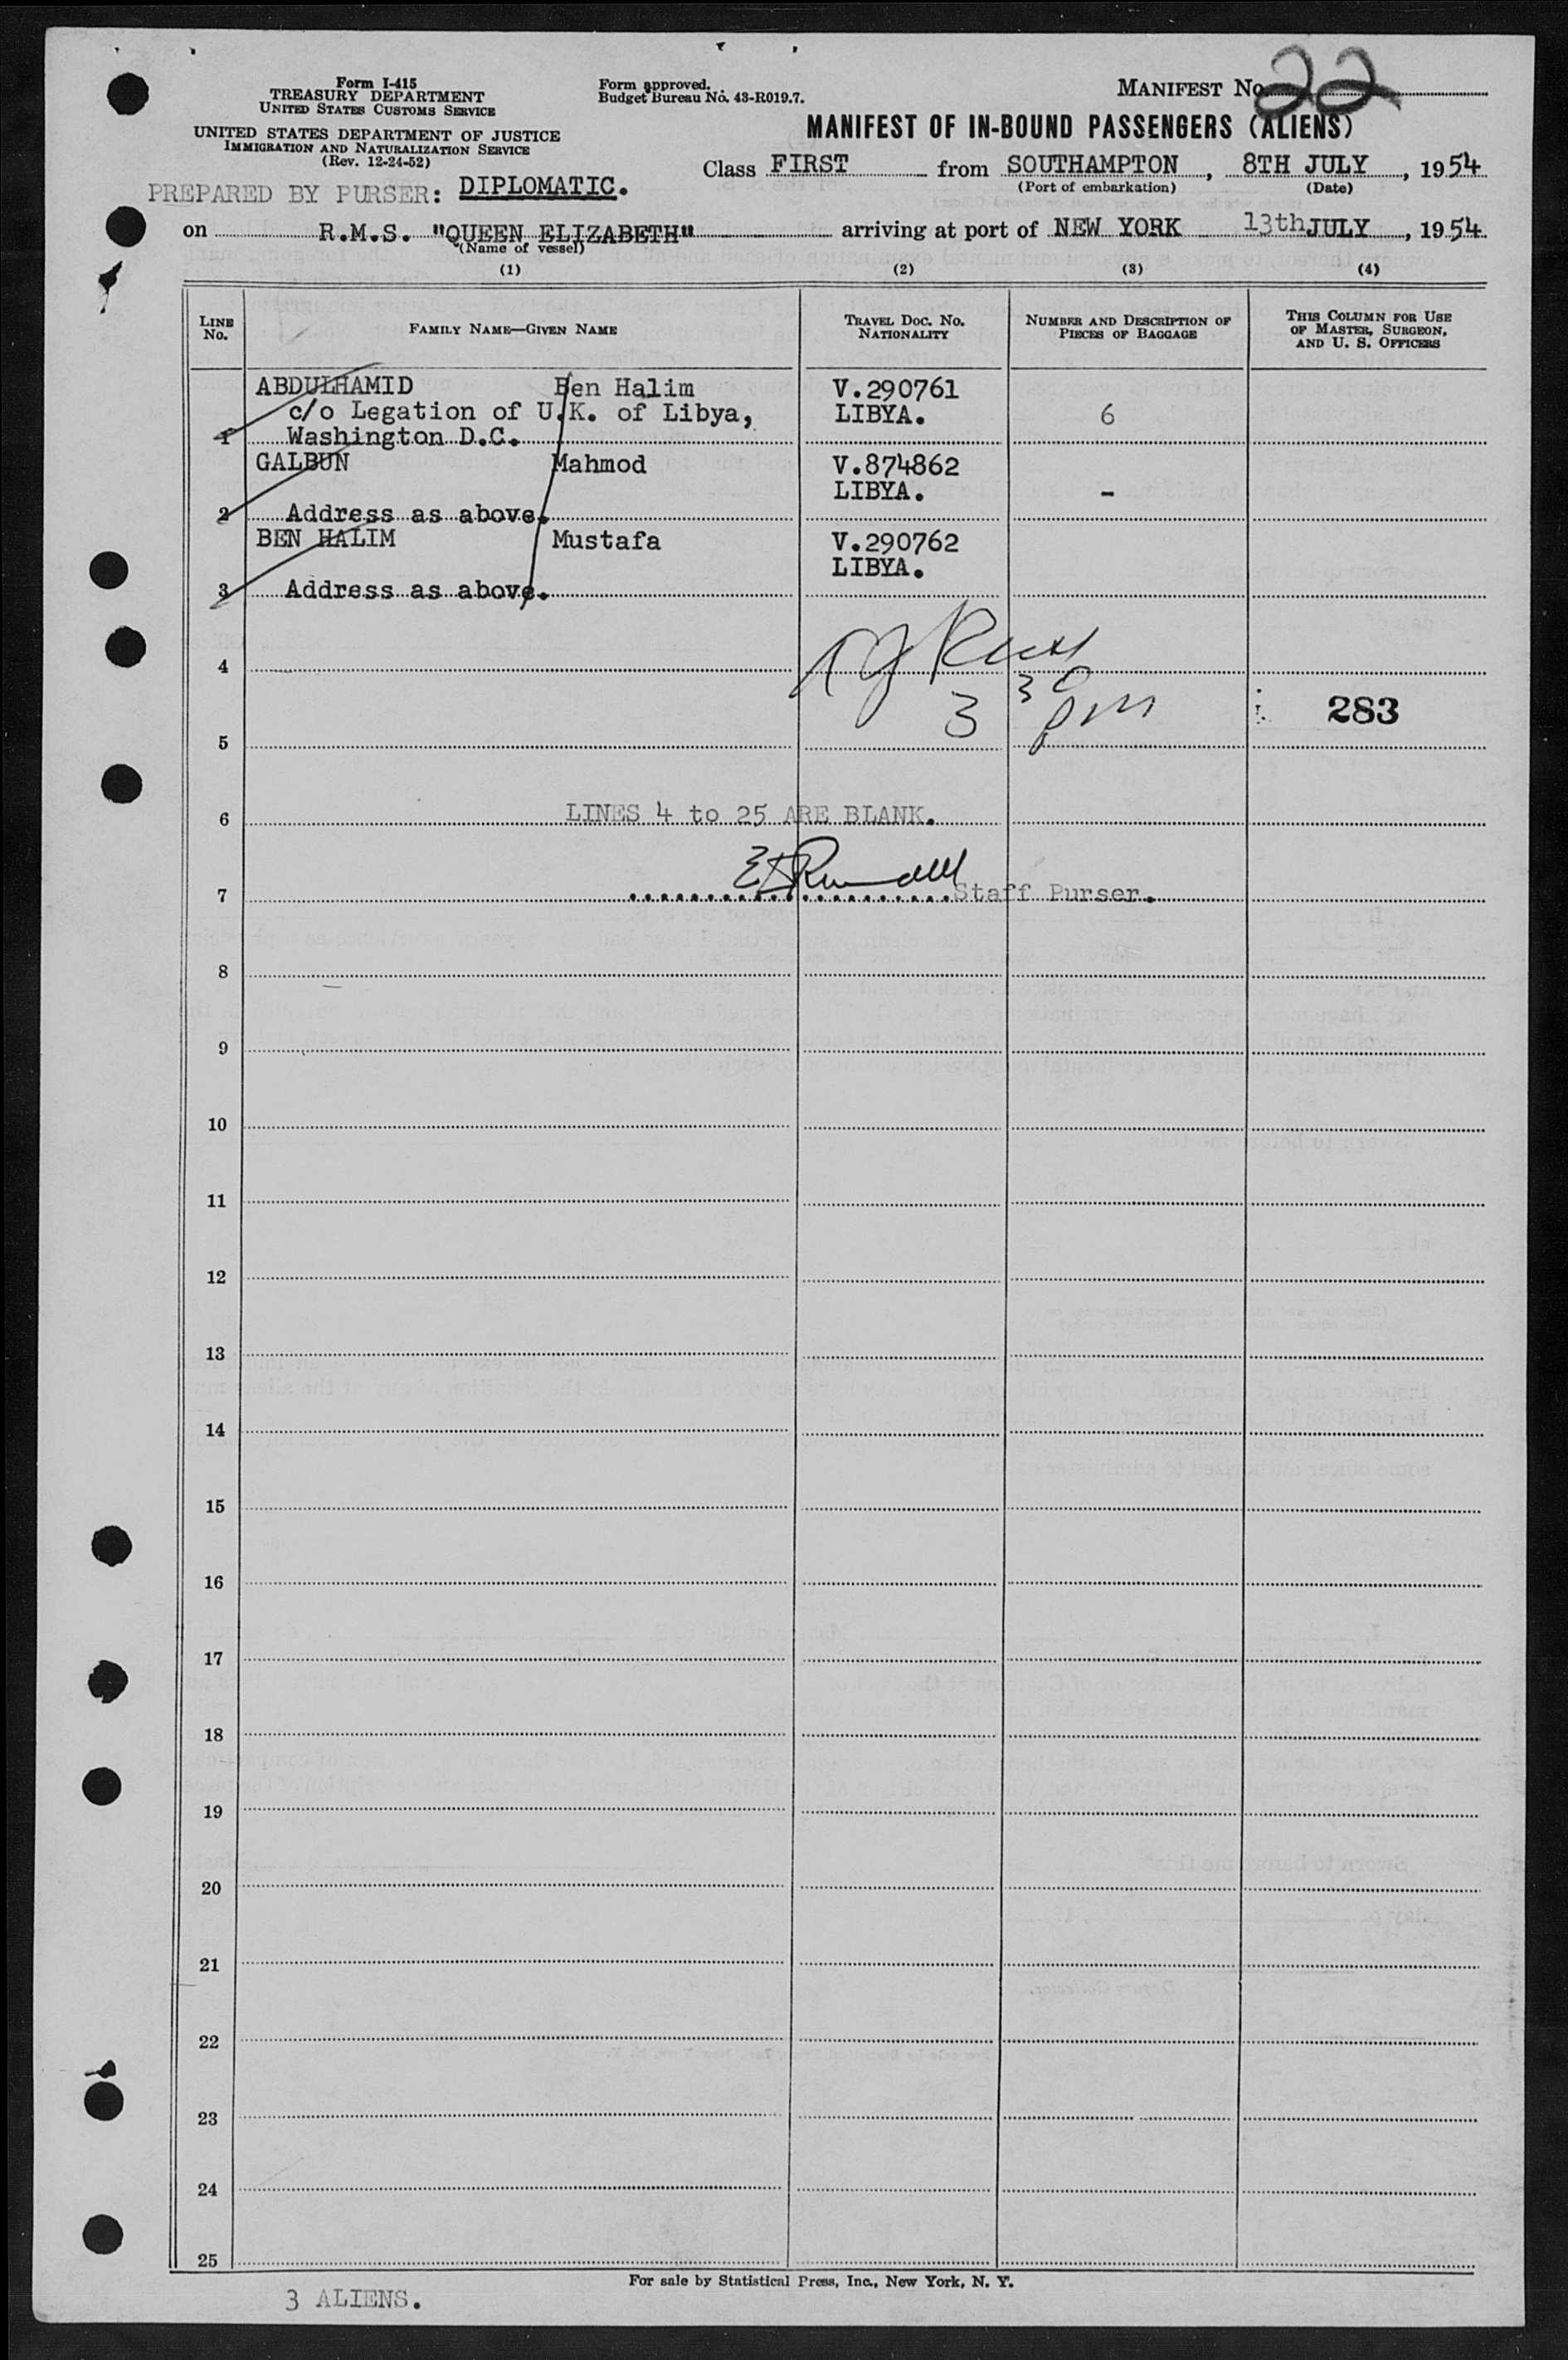 Form I-415
TREASURY DEPARTMENT
UNITED STATES CUSTOMS SERVICE
UNITED STATES DEPARTMENT OF JUSTICE
IMMIGRATION AND NATURALIZATION SERVICE
(Rev. 12-24-52)
Form approved.
Budget Bureau No. 43-R019.7.
MANIFEST No. 22
MANIFEST OF IN-BOUND PASSENGERS (ALIENS)
Class FIRST from SOUTHAMPTON, 8TH JULY, 1954
(Port of embarkation) (Date)
PREPARED BY PURSER: DIPLOMATIC.
on R.M.S. "QUEEN ELIZABETH" arriving at port of NEW YORK 13th JULY, 1954
(Name of vessel)
(1) (2) (3) (4)
LINE No. FAMILY NAME—GIVEN NAME TRAVEL DOC. NO. NATIONALITY NUMBER AND DESCRIPTION OF PIECES OF BAGGAGE THIS COLUMN FOR USE OF MASTER, SURGEON, AND U. S. OFFICERS
ABDULHAMID Ben Halim V.290761
c/o Legation of U.K. of Libya, LIBYA. 6
1 Washington D.C.
GALBUN Mahmod V.874862
LIBYA. -
2 Address as above.
BEN HALIM Mustafa V.290762
LIBYA.
3 Address as above.
4
3 30 pm 283
5
6 LINES 4 to 25 ARE BLANK.
7 Staff Purser.
8
9
10
11
12
13
14
15
16
17
18
19
20
21
22
23
24
25
For sale by Statistical Press, Inc., New York, N. Y.
3 ALIENS.